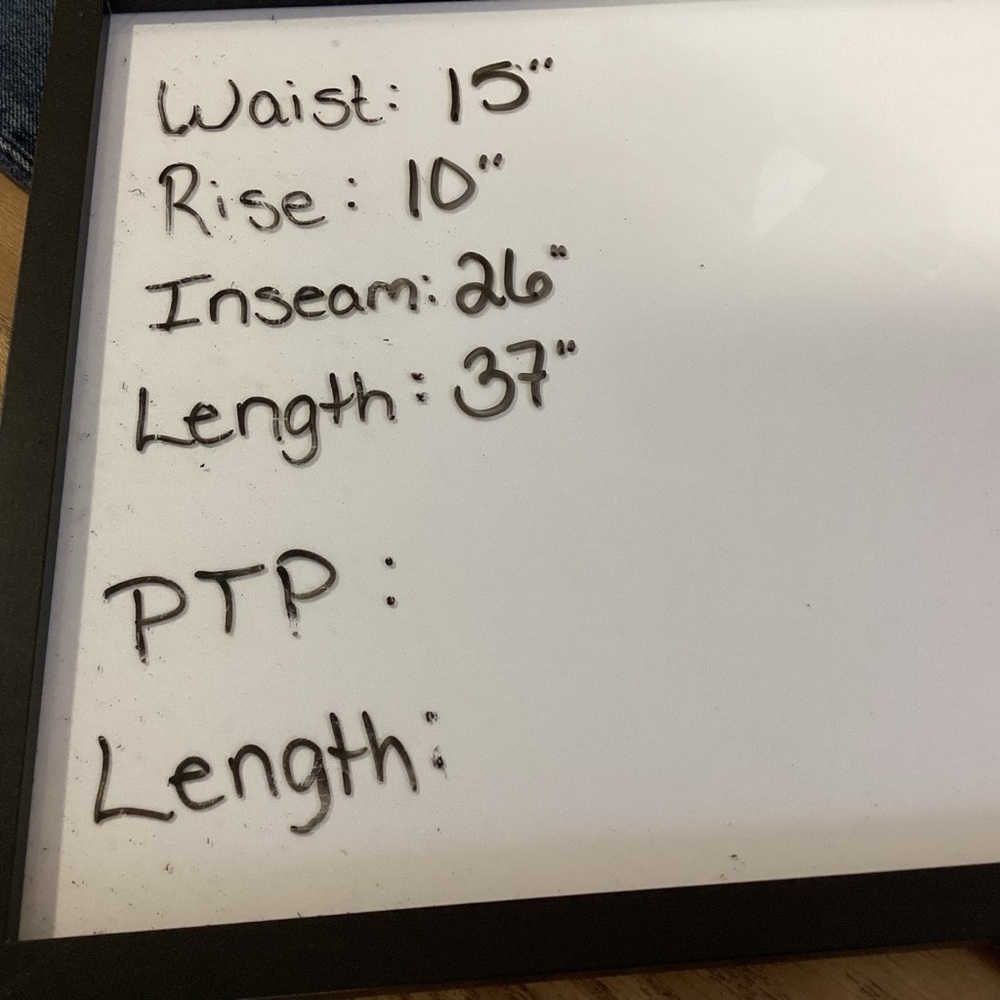 Waist: 15"
Rise: 10"
Inseam: 26"
Length: 37"
PTP:
Length: